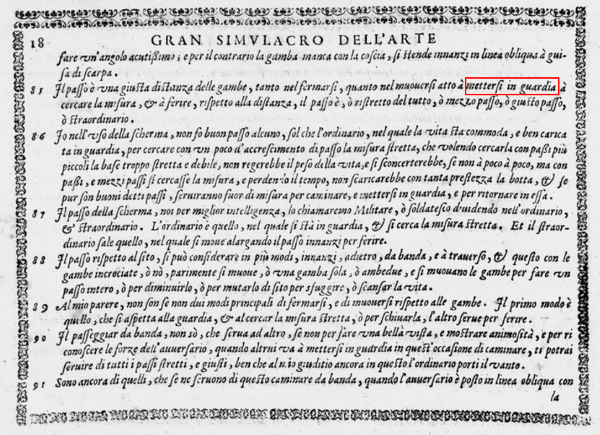 18 GRAN SIMVLACRO DELL'ARTE
fare vn'angolo acutissimo; e per il contrario la gamba manca con la coscia, si stende innanzi in linea obliqua à gui-
sa di scarpa.
85 Il passo è vna giusta distanza delle gambe, tanto nel fermarsi, quanto nel muouersi atto à mettersi in guardia à
cercare la misura, & à ferire, rispetto alla distanza, il passo è, ò ristretto del tutto, ò mezzo passo, ò giusto passo,
ò straordinario.
86 Io nell'vso della scherma, non fò buon passo alcuno, sol che l'ordinario, nel quale la vita sta commoda, e ben carica
ta in guardia, per cercare con vn poco d'accrescimento di passo la misura stretta, che volendo cercarla con passi più
piccoli la base troppo stretta e debile, non regerebbe il peso della vita, e si sconcerterebbe, se non à poco à poco, ma con
passi, e mezzi passi si cercasse la misura, e perdendo il tempo, non scaricarebbe con tanta prestezza la botta, & se
pur son buoni detti passi, seruiranno fuor di misura per caminare, e mettersi in guardia, e per ritornare in essa.
87 Il passo della scherma, noi per miglior intelligenza, lo chiamaremo Militare, ò soldatesco diuidendo nell'ordinario,
& straordinario. L'ordinario è quello, nel quale si stà in guardia, & si cerca la misura stretta. Et il straor-
dinario sale quello, nel quale si moue alargando il passo innanzi per ferire.
88 Il passo rispetto al sito, si può considerare in più modi, innanzi, adietro, da banda, e à trauerso, & questo con le
gambe incrociate, ò nò, parimente si muoue, ò vna gamba sola, ò ambedue, e si muouano le gambe per fare vn
passo intero, ò per diminuirlo, ò per mutarlo di sito per sfuggire, ò scansar la vita.
89 Al mio parere, non son se non dui modi principali di fermarsi, e di muouersi rispetto alle gambe. Il primo modo è
quello, che si aspetta alla guardia, & al cercar la misura stretta, ò per schiuarla, l'altro serue per ferire.
90 Il passeggiar da banda, non sò, che serua ad altro, se non per fare vna bella vista, e mostrare animosità, e per ri
conoscere le forze dell'auuersario, quando altrui và à mettersi in guardia in quest'occasione di caminare, ti potrai
seruire di tutti i passi stretti, e giusti, ben che al mio giuditio ancora in questo l'ordinario porti il vanto.
91 Sono ancora di quelli, che se ne seruono di questo caminare da banda, quando l'auuersario è posto in linea obliqua con
la